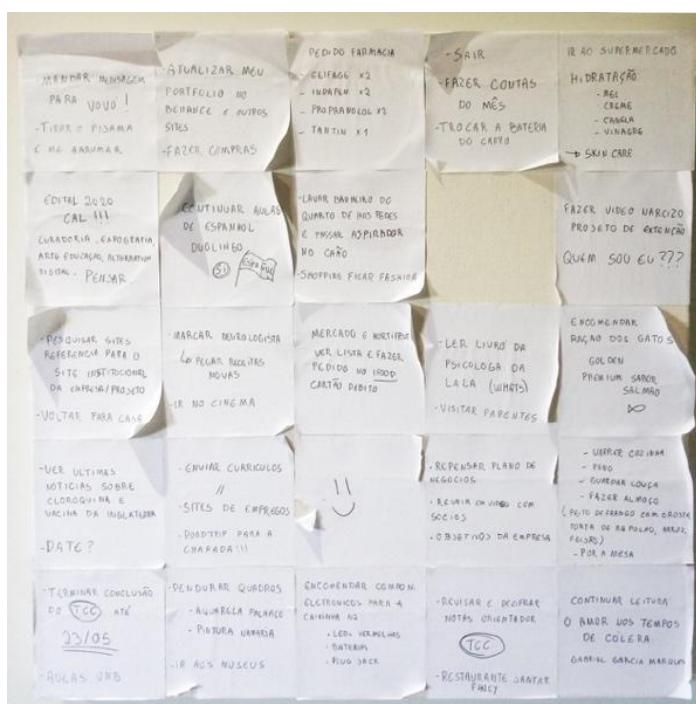 MANDAR MENSAGEM
PARA VOVO !
- TIRAR O PIJAMA
E ME ARRUMAR
- ATUALIZAR MEU
PORTFOLIO NO
BEHANCE E OUTROS
SITES
- FAZER COMPRAS
PEDIDO FARMACIA
- GLIFAGE X2
- INDAPEN X2
- PROPRANOLOL X2
- TANTIN X1
- SAIR
- FAZER CONTAS
DO MÊS
- TROCAR A BATERIA
DO CARRO
IR AO SUPERMERCADO
HIDRATAÇÃO
- MEL
- CREME
- CANELA
- VINAGRE
→ SKIN CARE
EDITAL 2020
CAL !!!
CURADORIA, EXPOGRAFIA,
ARTE EDUCAÇÃO, ALTERNATIVA
DIGITAL. PENSAR.
CONTINUAR AULAS
DE ESPANHOL
DUOLINGO
SI
- LAVAR BANHEIRO DO
QUARTO DE HOSPEDES
E PASSAR ASPIRADOR
NO CHÃO
- SHOPPING FICAR FASHION
FAZER VIDEO NARCIZO
PROJETO DE EXTENÇÃO
QUEM SOU EU ???
- PESQUISAR SITES
REFERENCIA PARA O
SITE INSTITUCIONAL
DA EMPRESA/PROJETO
- VOLTAR PARA CASA
- MARCAR NEUROLOGISTA
↳ PEGAR RECEITAS
NOVAS
- IR NO CINEMA
MERCADO E HORTIFRUTI
VER LISTA E FAZER
PEDIDO NO IFOOD
CARTÃO DEBITO
- LER LIVRO DA
PSICOLOGA DA
LALA (WHATS)
- VISITAR PARENTES
ENCOMENDAR
RAÇÃO DOS GATOS
GOLDEN
PREMIUM SABOR
SALMÃO
- VER ULTIMAS
NOTICIAS SOBRE
CLOROQUINA E
VACINA DA INGLATERRA
- DATE?
- ENVIAR CURRICULOS
//
- SITES DE EMPREGOS
- ROADTRIP PARA A
CHAPADA!!!
- REPENSAR PLANO DE
NEGOCIOS
- REUNIR EM VIDEO COM
SOCIOS
- OBJETIVOS DA EMPRESA
- VARRER COZINHA
- PANO
- GUARDAR LOUÇA
- FAZER ALMOÇO
(PEITO DE FRANGO COM CROSTA
TORTA DE REPOLHO, ARROZ,
FEIJÃO)
- POR A MESA
- TERMINAR CONCLUSÃO
DO TCC ATÉ
23/05
- AULAS UNB
- PENDURAR QUADROS
- AQUARELA PALHAÇO
- PINTURA
- IR AOS MUSEUS
ENCOMENDAR COMPON.
ELETRONICOS PARA A
CAIXINHA
- LEDS VERMELHOS
- BATERIAS
- PLUG JACK
- REVISAR E DECIFRAR
NOTAS ORIENTADOR
TCC
- RESTAURANTE JANTAR
FANCY
CONTINUAR LEITURA
O AMOR NOS TEMPOS
DE CÓLERA
GABRIEL GARCIA MARQUES